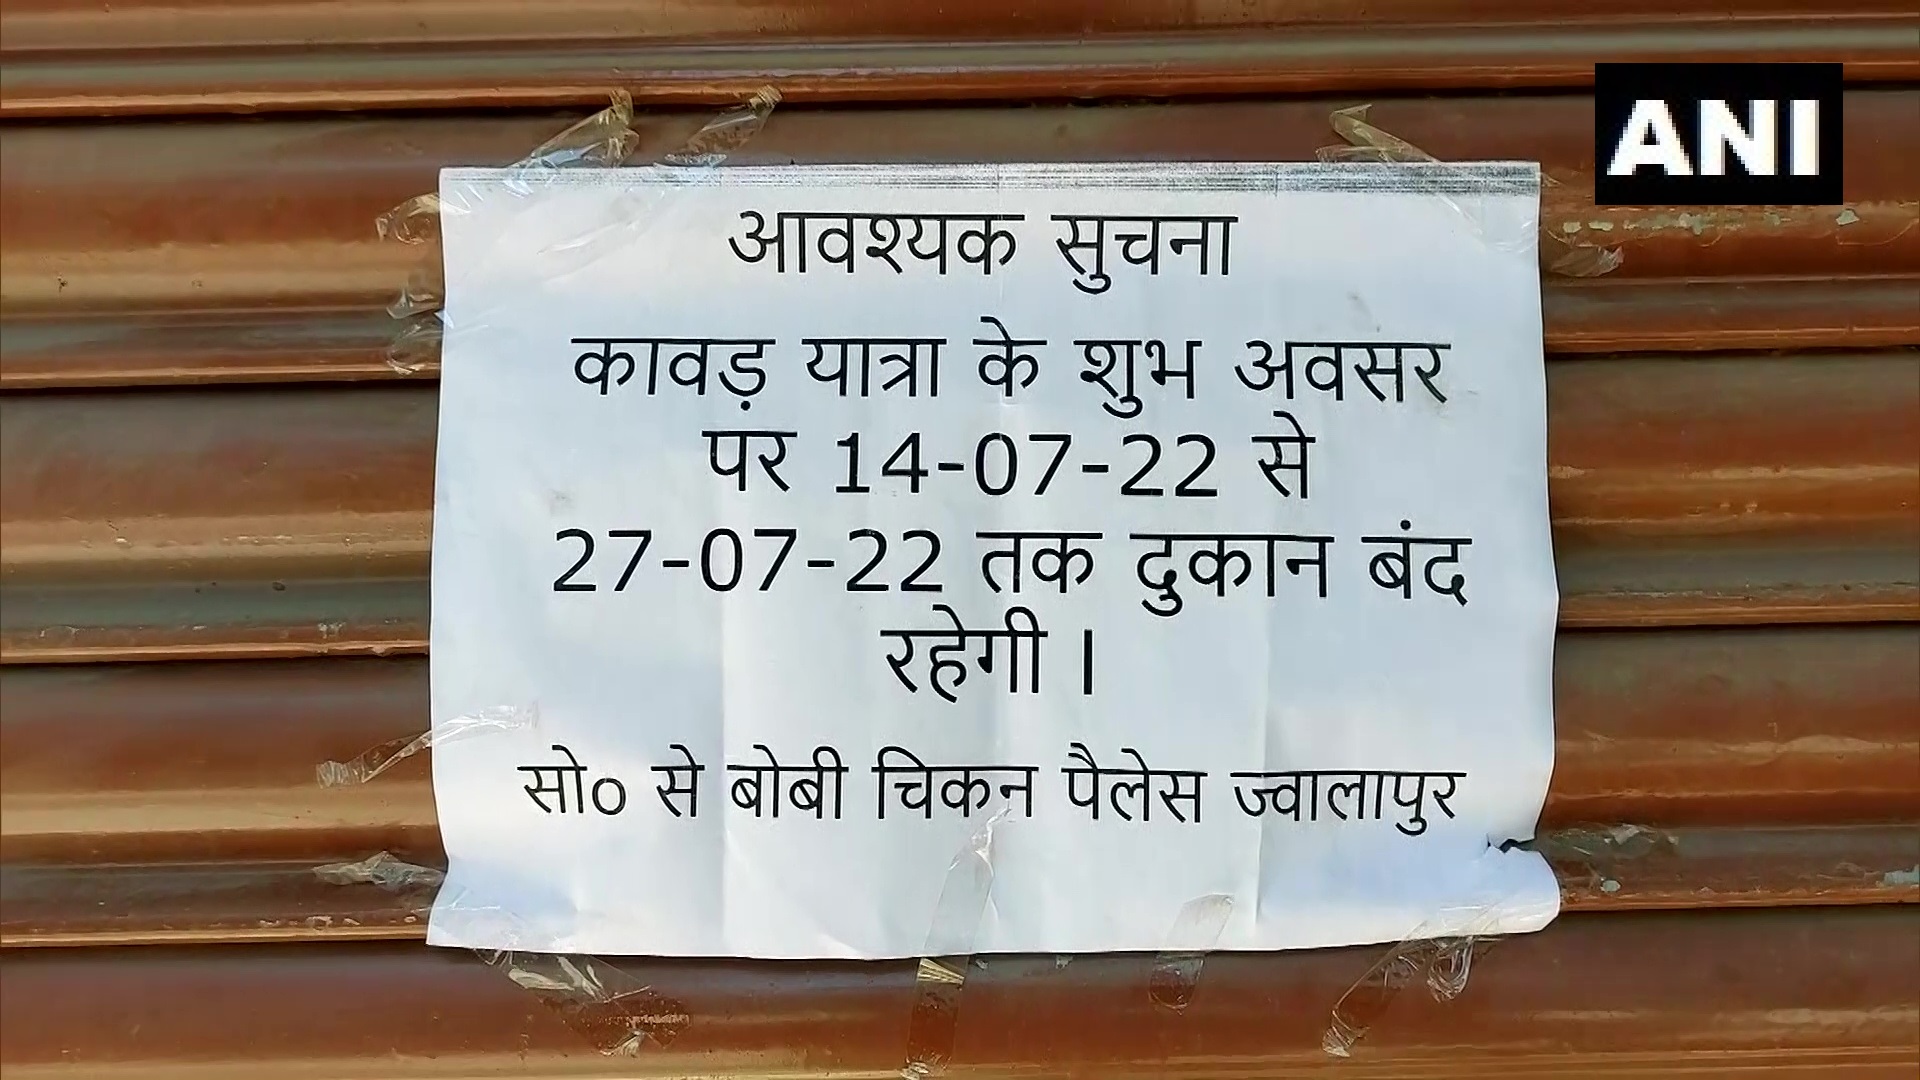 ANI
आवश्यक सुचना
कावड़ यात्रा के शुभ अवसर
पर 14-07-22 से
27-07-22 तक दुकान बंद
रहेगी ।
सो० से बोबी चिकन पैलेस ज्वालापुर